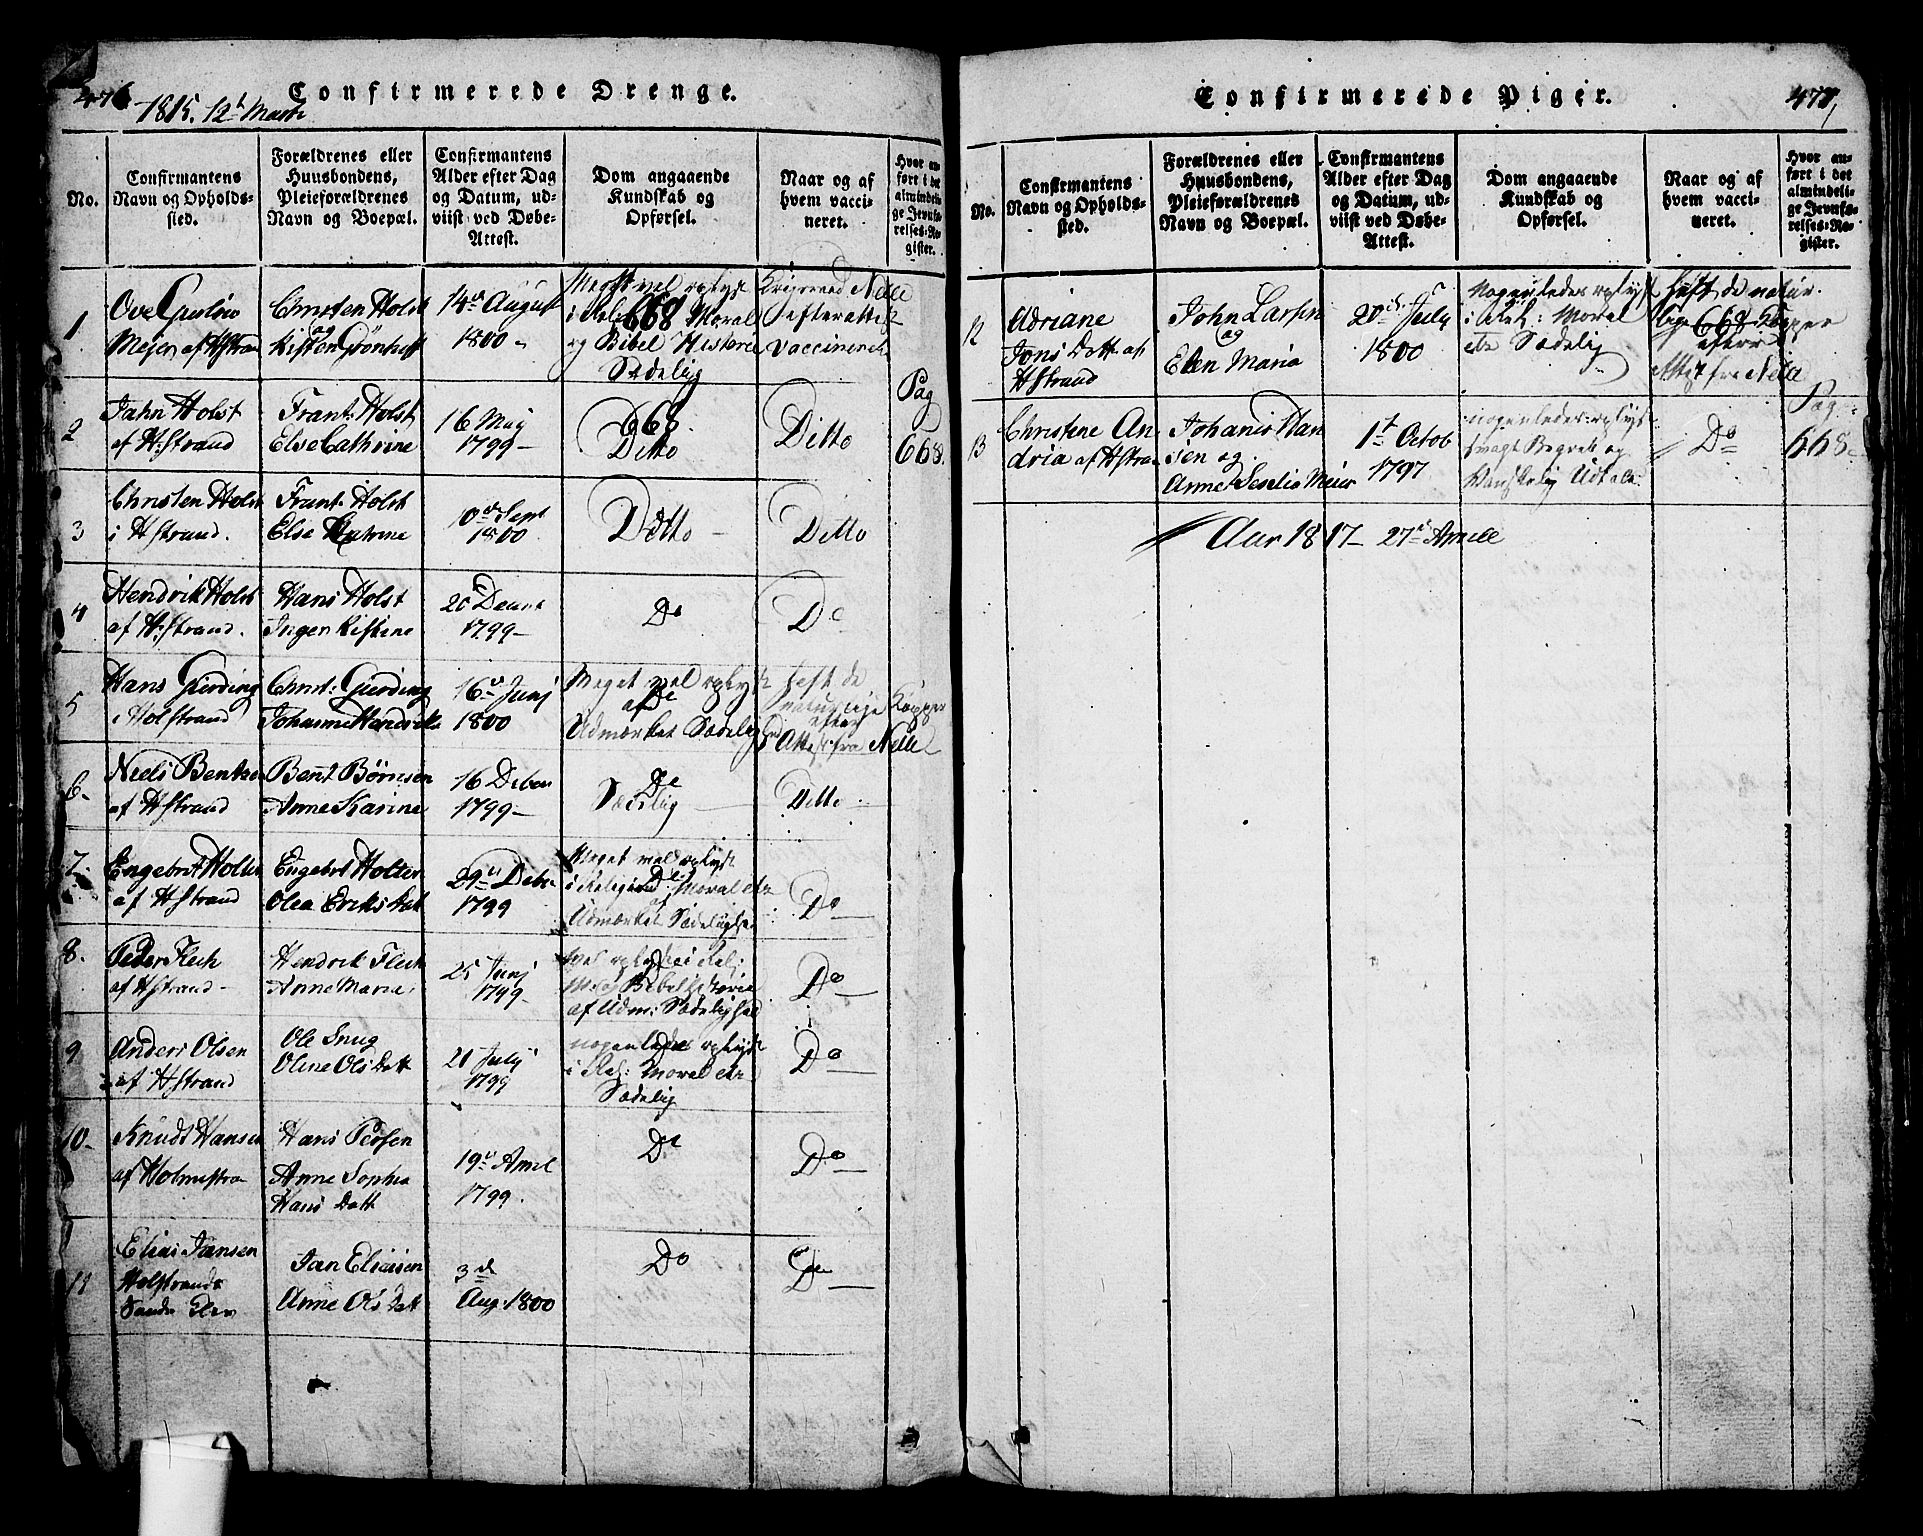 476
Confirmerede Drenge.
1815. 12t Marti
No.
Confirmantens
Navn og Opholds-
sted.
Forældrenes eller
Huusbondens,
Pleieforældrenes
Navn og Boepæl.
Confirmantens
Alder efter Dag
og Datum, ud-
viist ved Døbe-
Attest.
Dom angaaende
Kundskab og
Opførsel.
Naar og af
hvem vacci-
neret.
Hvor an-
ført i det
almindeli-
ge Jevnfø-
relses-Re-
gister.
1
Ove
Meier af HStran
Christen Holst
og
14de August
1800
Meget vel oplyst
i Rel 668 Moral
og Bibel Historie
Sædelig
efter attest
vaccineret
Pag
668
2
Jahn Holst
af H:Strand
Frant: Holst
Else Cathrine
16 May
1799
668
Ditto
Ditto
3
Christen Holst
i HStrand.
Frant: Holst
Else Catrine
10de Sept
1800
Ditto
Ditto
4
Hendrik Holst
af H:Strand.
Hans Holst
Inger Kistine
20 Decmt
1799
Do
Do
5
Hans Gierding
Holstrand
Christ: Gierding
Johanne Hendrik
16de Junj
1800
Meget vel oplyst
af Do
Udmærket Sædelig
Haft de
naturlige Kopper
efter
Attest fra Nelle
6
Niels Bentse
af HStrand
Bent Børnsen
Anne Karine
16 Deben
1799
Do
Sædelig
Ditto
7
Engebret Holter
af HStrand
Engebret Holter
Olea Eriks Datt
29de Debe
1799
Meget vel oplyst
i Religion Moral etc
af
Udmærket Sædelighed
Do
8.
Peder Flech
af HStrand
Hendrik Flech
Anne Maria
25 Junj
1799
vel oplyst i Rel:
M: og Bibelhistorie
af Udm: Sædelighed
Do
9
Anders Olsen
af HStrand
Ole Snug
Oline Ols Datt
21 Julij
1799
nogenledes oplyst
i Rel: Moral etc
Sædelig
Do
10
Knudt Hansen
af Holmestra
Hans Pedsen
Anne Sophia
Hans Datt
19de April
1799.
Do
Do
11
Elias Jansen
Holstrands
Jan Eliasen
Anne Ols Datt
3de
Aug. 1800
Do
Do
Confirmerede Piger.
477
No.
Confirmantens
Navn og Opholds-
sted.
Forældrenes eller
Huusbondens,
Pleieforældrenes
Navn og Boepæl.
Confirmantens
Alder efter Dag
og Datum, ud-
viist ved Døbe-
Attest.
Dom angaaende
Kundskab og
Opførsel.
Naar og af
hvem vacci-
neret.
Hvor an-
ført i det
almindeli-
ge Jevnfø-
relses-Re-
gister.
12
Adriane
Jons Datt af
HStrand
John Larsen
og
Elen Maria
20de July
1800
Nogenledes oplyst
i Rel: Moral
etc Sædelig
Haft de natur-
lige 668 Kopper
efter
Attest fra Nelle
Pag
668
13
Christene An
dria af HStran
Johanis Han
sen og
Anne Seselia Meier
1te Octob
1797
nogenledes oplyst
svagt Begreb og
Vanskelig Udtale
Do
Aar 1817 27de Aprill